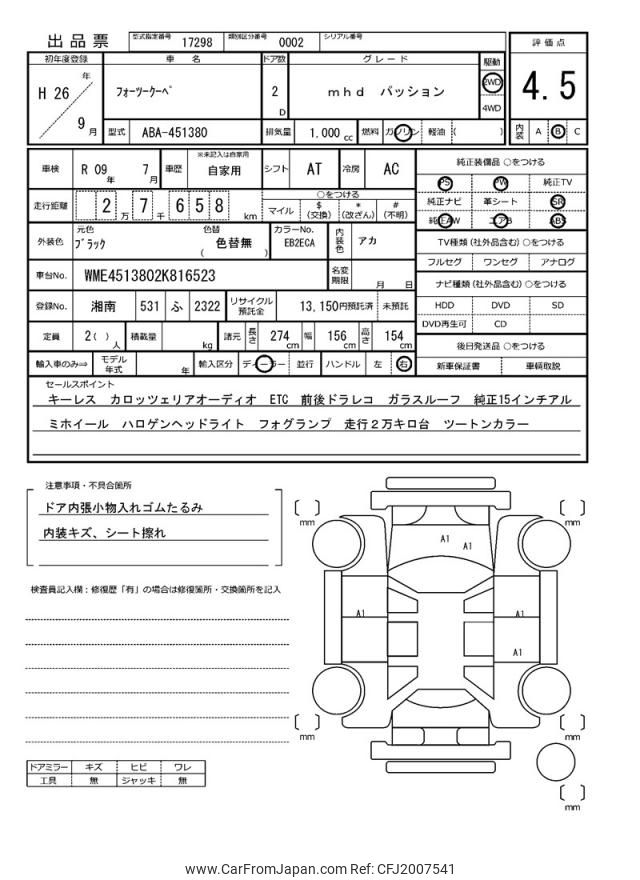 出品票 型式指定番号 17298 類別区分番号 0002 シリアル番号
評価点
4.5
内装 A B C
初年度登録 車名 ドア数 グレード 駆動
H 26 年 9 月
フォーツークーペ 2 D mhd パッション 2WD 4WD
型式 ABA-451380 排気量 1,000 cc 燃料 ガソリン 軽油 ( )
車検 R 09 年 7 月 車歴 ※未記入は自家用 自家用 シフト AT 冷房 AC
走行距離 2 万 7 千 6 5 8 km ○をつける マイル $ (交換) * (改ざん) # (不明)
外装色 元色 ブラック 色替 色替無 ( ) カラーNo. EB2ECA 内装色 アカ
車台No. WME4513802K816523 名変期限 月 日
登録No. 湘南 531 ふ 2322 リサイクル預託金 13,150円預託済 未預託
定員 2( ) 人 積載量 kg 諸元 長さ 274 cm 幅 156 cm 高さ 154 cm
輸入車のみ⇒ モデル年式 年 輸入区分 ディーラー 並行 ハンドル 左 右
純正装備品 ○をつける
PS PW 純正TV
純正ナビ 革シート SR
純正AW エアB ABS
TV種類 (社外品含む) ○をつける
フルセグ ワンセグ アナログ
ナビ種類 (社外品含む) ○をつける
HDD DVD SD
DVD再生可 CD
後日発送品 ○をつける
新車保証書 車輌取説
セールスポイント
キーレス カロッツェリアオーディオ ETC 前後ドラレコ ガラスルーフ 純正15インチアル
ミホイール ハロゲンヘッドライト フォグランプ 走行２万キロ台 ツートンカラー
注意事項・不具合箇所
ドア内張小物入れゴムたるみ
内装キズ、シート擦れ
検査員記入欄：修復歴「有」の場合は修復箇所・交換箇所を記入
ドアミラー キズ ヒビ ワレ
工具 無 ジャッキ 無
mm
mm
A1
A1
A1
A1
A1
mm
mm
mm
www.CarFromJapan.com Ref: CFJ2007541